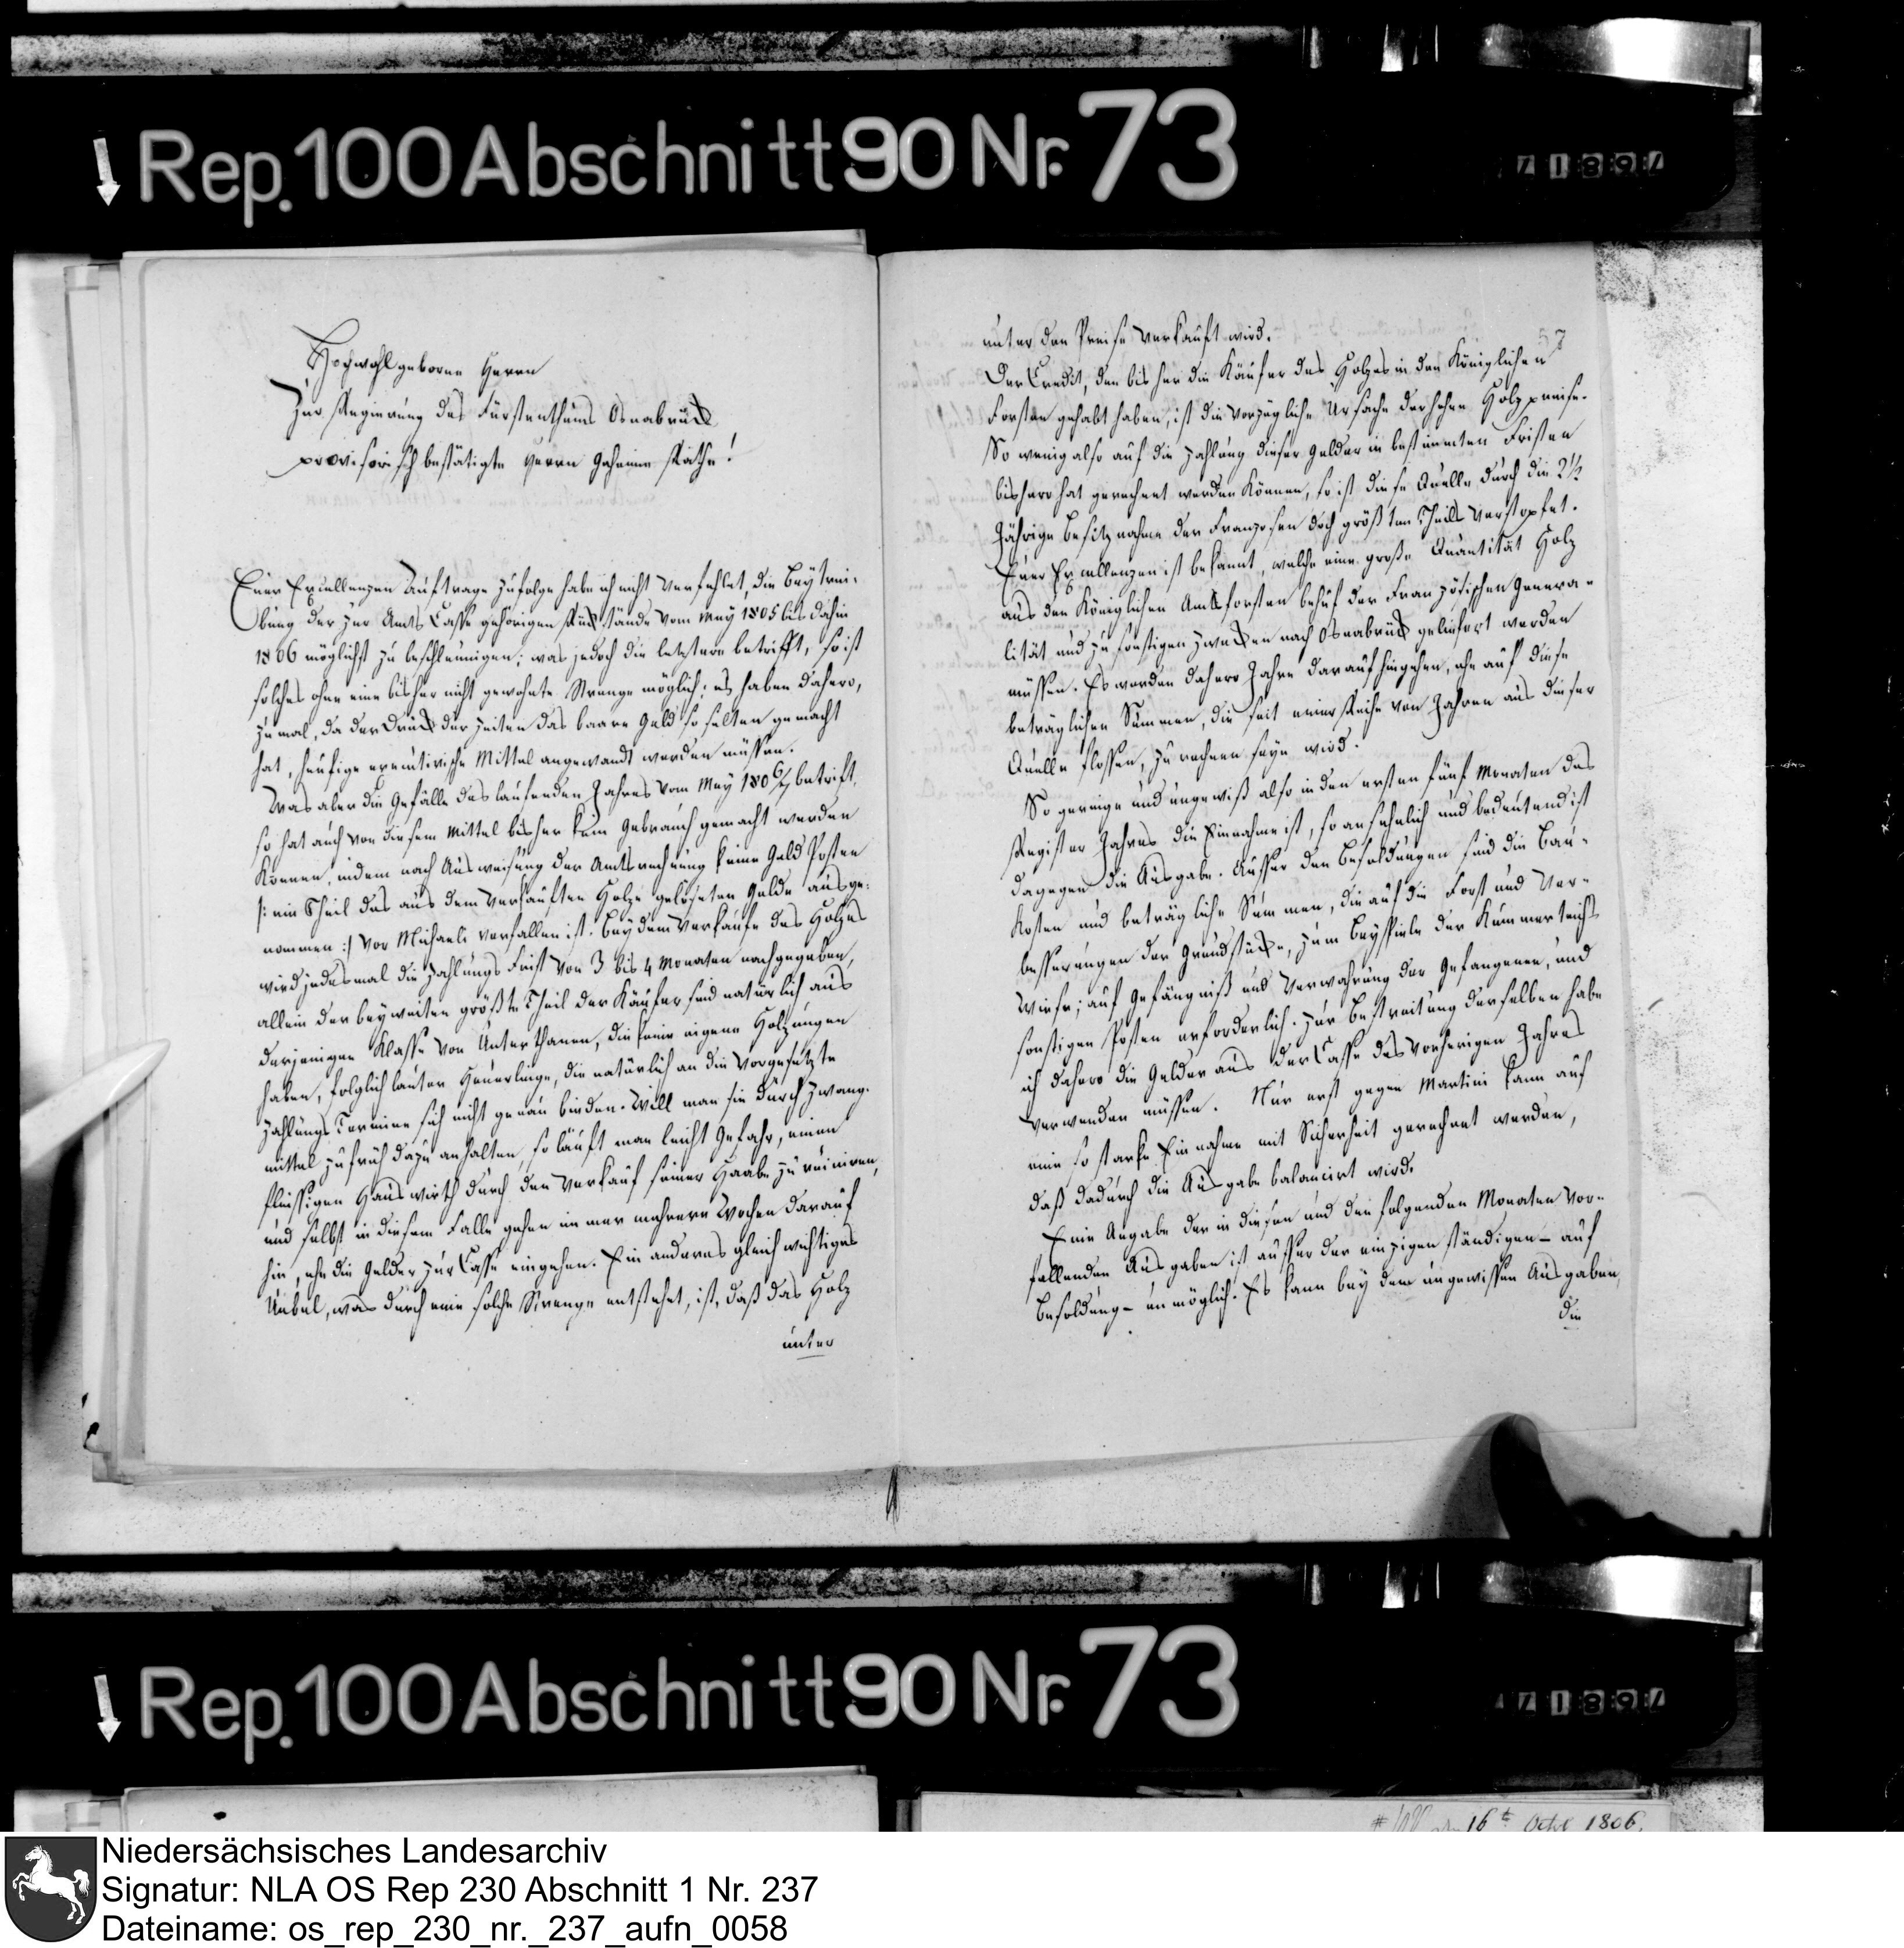 Rep. 100 Abschnitt 90 Nr. 73
Hochwohlgeborne Herrn
Zur Regierung des Fürstenthums Osnabrück
provisorisch bestätigte Herrn Geheime Räthe!
Euer Excellenzen Auftrage zufolge habe ich nicht verfehlet, die Beytrei-
bung der zur Amts Casse gehörigen Rückstände vom May 1805 bis dahin
1806 möglichst zu beschleunigen; was jedoch die letztere betrifft, so ist
solches ohne eine bisher nicht gewohnte Strenge möglich; es haben dahero,
zumal, da der Druck der Zeiten das baare Geld so selten gemacht
hat, häufige executivische Mittel angewandt werden müssen.
Was aber die Gefälle des laufenden Jahres vom May 1806/7 betrift,
so hat auch von diesem Mittel bisher kein Gebrauch gemacht werden
können, indem nach Ausweisung der Amtsrechnung keine Geld Posten
/: ein Theil des aus dem verkauften Holze gelöseten Geldes ausge-
nommen :/ vor Michaeli verfallen ist. Bey dem Verkaufe des Holzes
wird jedesmal die Zahlungs Frist von 3 bis 4 Monaten nachgegeben,
allein der bey weiten größte Theil der Käufer sind natürlich aus
derjenigen Klasse von Unterthanen, die keine eigene Holzungen
haben, folglich lauter Heuerlinge, die natürlich an die vorgesetzte
Zahlungs Termine sich nicht genau binden. Will man sie durch Zwang-
mittel zu früh dazu anhalten, so läuft man leicht Gefahr, einen
fleissigen Hauswirth durch den Verkauf seiner Haabe zu ruiniren,
und selbst in diesem Falle gehen immer mehrere Wochen darauf
hin, ehe die Gelder zur Casse eingehen. Ein anderes gleich wichtiges
Uebel, was durch eine solche Strenge entstehet, ist, daß das Holz
unter
57
unter den Preise verkauft wird.
Der Credit, den bisher die Käufer des Holzes in den Königlichen
Forsten gehabt haben, ist die vorzügliche Ursache der hohen Holzpreise.
So wenig also auf die Zahlung dieser Gelder in bestimmten Fristen
bishero hat gerechnet werden können, so ist diese Quelle durch die 2½
Jährige Besitznahme der Franzosen doch größten Theils verstopfet.
Euer Excellenzen ist bekannt, welche eine große Quantität Holz
aus den Königlichen Amtsforsten behuf der Französischen Genera-
lität und zu sonstigen Zwecken nach Osnabrück geliefert werden
müssen. Es werden dahero Jahre darauf hingehen, ehe auf diese
beträglichen Summen, die seit einer Reihe von Jahren aus dieser
Quelle flossen, zu rechnen seyn wird.
So geringe und ungewiß also in den ersten fünf Monaten des
Register Jahres die Einnahme ist, so ansehnlich und bedeutend ist
dagegen die Ausgabe. Ausser den Besoldungen sind die Bau-
kosten und beträgliche Summen, die auf die Forst und Ver-
besserungen der Grundstücke, zum Beyspiele der Kummerteichs
Wiese; auf Gefängniß und Verwahrung der Gefangenen, und
sonstigen Posten erforderlich. Zur Bestreitung derselben habe
ich dahero die Gelder aus der Casse des vorherigen Jahres
verwenden müssen. Nur erst gegen Martini kann auf
eine so starke Einnahme mit Sicherheit gerechnet werden,
daß dadurch die Ausgabe balancirt wird.
Eine Angabe der in diesen und den folgenden Monaten vor-
fallenden Ausgaben ist ausser der einzigen ständigen – auf
Besoldung – unmöglich. Es kann bey dem ungewissen Ausgaben,
die
Rep. 100 Abschnitt 90 Nr. 73
16t Octbr 1806.
Niedersächsisches Landesarchiv
Signatur: NLA OS Rep 230 Abschnitt 1 Nr. 237
Dateiname: os_rep_230_nr._237_aufn_0058